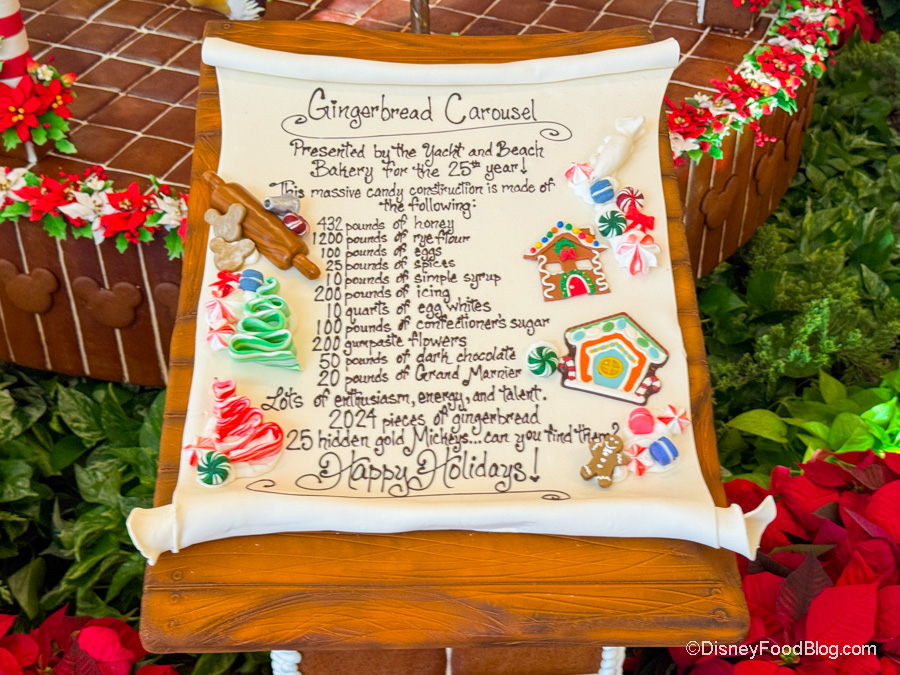 Gingerbread Carousel
Presented by the Yacht and Beach
Bakery for the 25th year!
This massive candy construction is made of
the following:
432 pounds of honey
1200 pounds of rye flour
100 pounds of eggs
25 pounds of spices
10 pounds of simple syrup
200 pounds of icing
10 quarts of egg whites
100 pounds of confectioner's sugar
200 gumpaste flowers
50 pounds of dark chocolate
20 pounds of Grand Marnier
Lots of enthusiasm, energy, and talent.
2024 pieces of gingerbread
25 hidden gold Mickeys...can you find them?
Happy Holidays!
©DisneyFoodBlog.com